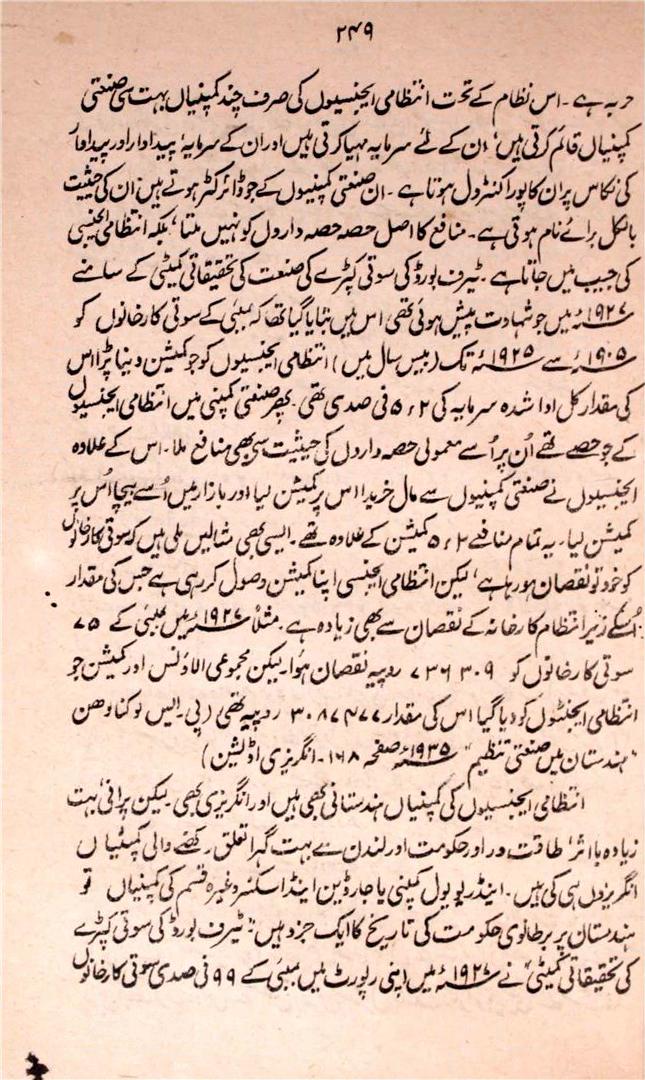 ۲۴۹
حربہ ہے۔ اس نظام کے تحت انتظامی ایجنسیوں کی صرف چند کمپنیاں بہت سی صنعتی
کمپنیاں قائم کرتی ہیں، ان کے لئے سرمایہ مہیا کرتی ہیں اور ان کے سرمایۂ پیداوار اور پیداوار
کی نکاس پر ان کا پورا کنٹرول ہوتا ہے۔ ان صنعتی کمپنیوں کے جو ڈائرکٹر ہوتے ہیں ان کی حیثیت
بالکل برائے نام ہوتی ہے۔ منافع کا اصل حصہ حصہ داروں کو نہیں ملتا، بلکہ انتظامی ایجنسی
کی جیب میں جاتا ہے۔ ٹیرف بورڈ کی سوتی کپڑے کی صنعت کی تحقیقاتی کمیٹی کے سامنے
۱۹۲۷ء میں جو شہادت پیش ہوئی تھی اس میں بتایا گیا تھا کہ بمبئی کے سوتی کارخانوں کو
۱۹۰۵ء سے ۱۹۲۵ء تک (بیس سال میں) انتظامی ایجنسیوں کو جو کمیشن دینا پڑا اس
کی مقدار کل ادا شدہ سرمایہ کی ۵ء۲ فی صدی تھی۔ پھر صنعتی کمپنی میں انتظامی ایجنسیوں
کے جو حصے تھے اُن پر اُسے معمولی حصہ داروں کی حیثیت سے بھی منافع ملا۔ اس کے علاوہ
ایجنسیوں نے صنعتی کمپنیوں سے مال خریدا اس پر کمیشن لیا اور بازار میں اُسے بیچا اُس پر
کمیشن لیا۔ یہ تمام منافعے ۵ء۲ کمیشن کے علاوہ تھے۔ ایسی بھی مثالیں ملی ہیں کہ سوتی کارخانوں
کو خود تو نقصان ہو رہا ہے، لیکن انتظامی ایجنسی اپنا کمیشن وصول کر رہی ہے جس کی مقدار
اُسکے زیر انتظام کارخانہ کے نقصان سے بھی زیادہ ہے۔ مثلاً ۱۹۲۷ء میں بمبئی کے ۷۵
سوتی کارخانوں کو ۷۳۶۳۰۹ روپیہ نقصان ہوا۔ لیکن مجموعی الاؤنس اور کمیشن جو
انتظامی ایجنٹوں کو دیا گیا اس کی مقدار ۳۰۸۷۴۷۷ روپیہ تھی، (پی۔ ایس لوکناوھن
"ہندستان میں صنعتی تنظیم" ۱۹۳۵ء صفحہ ۱۶۸۔ انگریزی اڈیشن)
انتظامی ایجنسیوں کی کمپنیاں ہندستانی بھی ہیں اور انگریزی بھی۔ لیکن پرانی، بہت
زیادہ با اثر، طاقت ور اور حکومت اور لندن سے بہت گہرا تعلق رکھنے والی کمپنیاں
انگریزوں ہی کی ہیں۔ اینڈریویول کمپنی یا جارڈین اینڈ اسکنر وغیرہ قسم کی کمپنیاں تو
ہندستان پر برطانوی حکومت کی تاریخ کا ایک جزو ہیں: ٹیرف بورڈ کی سوتی کپڑے
کی تحقیقاتی کمیٹی" نے ۱۹۲۷ء میں اپنی رپورٹ میں بمبئی کے ۹۹ فی صدی سوتی کارخانوں